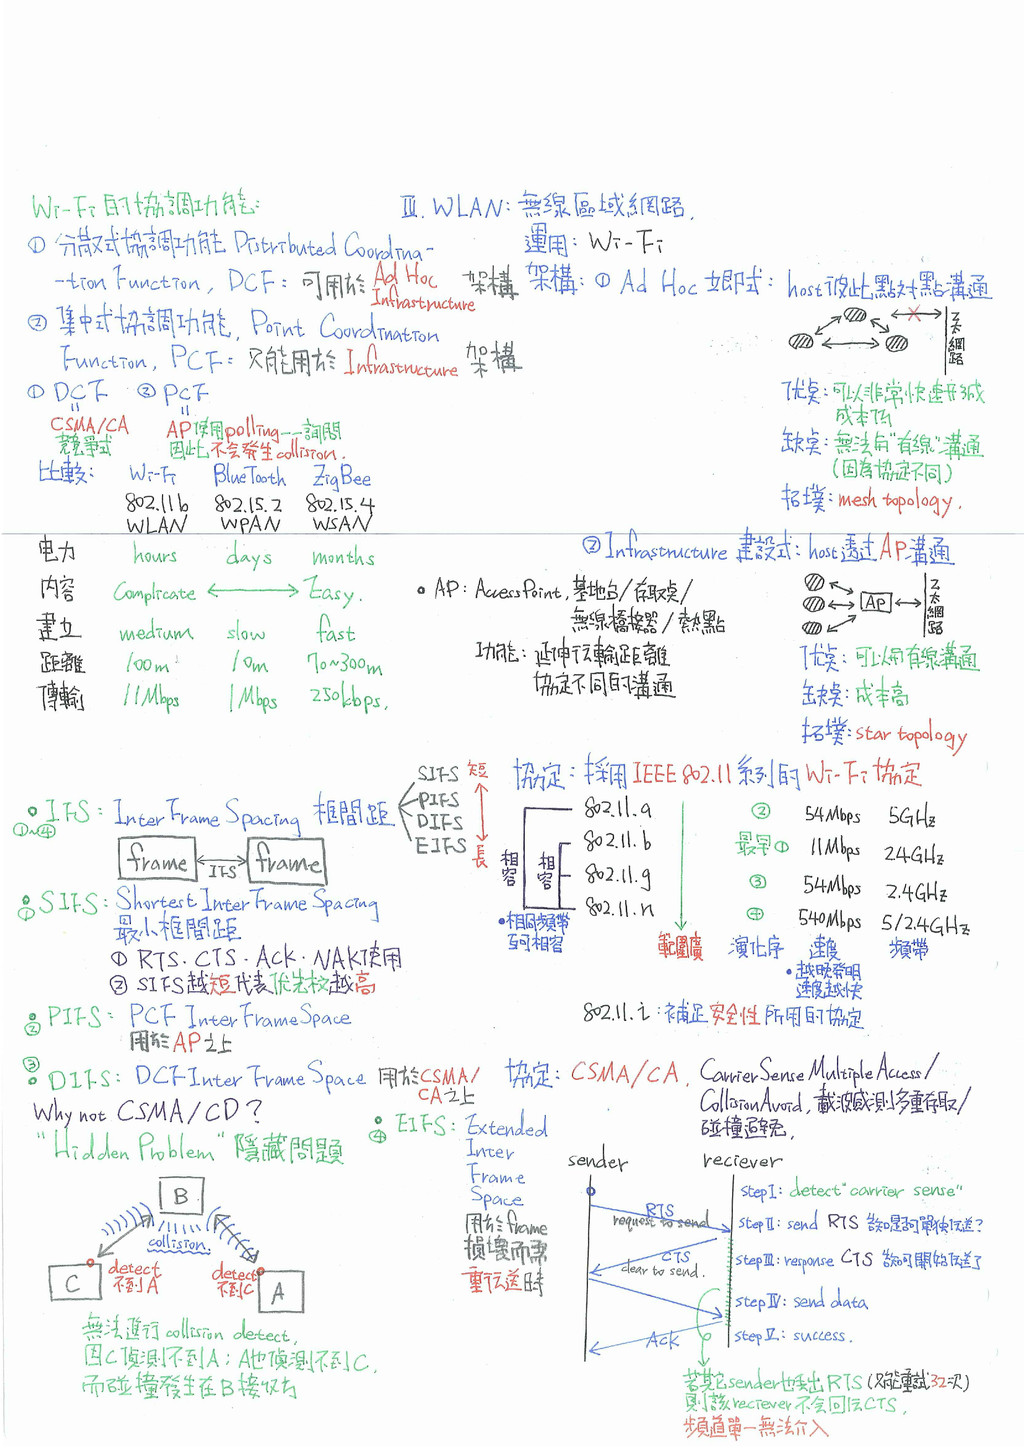 Wi-Fi 的協調功能:
① 分散式協調功能 Distributed Coordina-
-tion Function, DCF: 可用於 Ad Hoc Infrastructure 架構
② 集中式協調功能, Point Coordination
Function, PCF: 只能用於 Infrastructure 架構
① DCF ② PCF
CSMA/CA AP使用polling 一一詢問
競爭式 因此不会發生collision.
比較: Wi-Fi BlueTooth ZigBee
802.11b 802.15.2 802.15.4
WLAN WPAN WSAN
电力 hours days months
內容 Complicate Easy.
建立 medium slow fast
距離 100m 10m 70~300m
傳輸 11Mbps 1Mbps 250kbps.
III. WLAN: 無線區域網路.
運用: Wi-Fi
架構: ① Ad Hoc 立即式: host彼此點对點溝通
乙太網路
优点: 可以非常快速
成本低
缺点: 無法用"有線"溝通
(因為協定不同)
拓墣: mesh topology.
② Infrastructure 建設式: host透过AP溝通
AP
乙太網路
优点: 可以用有線溝通
缺点: 成本高
拓墣: star topology
AP: Access Point, 基地台/存取点/
無線橋接器/熱點
功能: 延伸傳輸距離
協定不同的溝通
IFS: Inter Frame Spacing 框間距
①~④
SIFS 短
PIFS
DIFS
EIFS 長
frame IFS frame
① SIFS: Shortest Inter Frame Spacing
最小框間距
① RTS、CTS、Ack、NAK使用
② SIFS越短代表优先权越高
② PIFS: PCF Inter Frame Space
用於AP之上
③ DIFS: DCF Inter Frame Space 用於CSMA/
CA之上
Why not CSMA/CD?
"Hidden Problem" 隱藏問題
B
collision.
C detect 不到A
detect 不到C A
無法進行 collision detect,
因C偵測不到A; A也偵測不到C,
而碰撞發生在B接收方
④ EIFS: Extended
Inter
Frame
Space
用於frame
損壞而需
重传送時
協定: 採用 IEEE 802.11 系列的 Wi-Fi 協定
802.11.a ② 54Mbps 5GHz
802.11.b 最早① 11Mbps 2.4GHz
802.11.g ③ 54Mbps 2.4GHz
802.11.n ④ 540Mbps 5/2.4GHz
相容 相容
相同頻帶
互可相容
範圍廣 演化序 速度 頻帶
越晚發明
速度越快
802.11.i: 補足安全性所用的協定
協定: CSMA/CA, Carrier Sense Multiple Access/
Collision Avoid, 載波感測多重存取/
碰撞避免,
sender reciever
RTS
request to send
CTS
clear to send.
Ack
step I: detect "carrier sense"
step II: send RTS 告知是否可單独传送?
step III: reponse CTS 告知可開始传送了
step IV: send data
step V: success.
若其它sender也丟出RTS (只能重試32次)
則該reciever不会回传CTS,
頻道單一無法介入